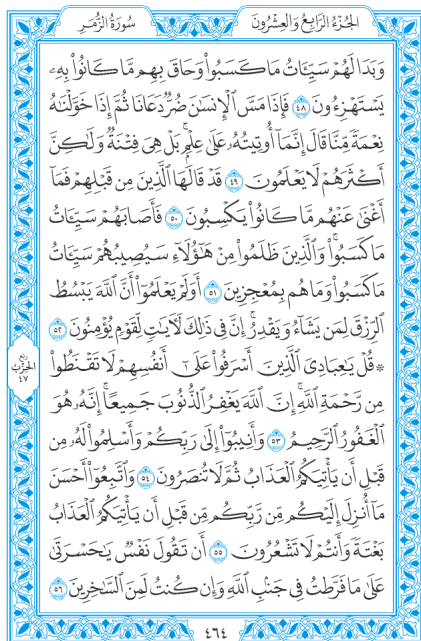 الجزء الرابع والعشرون
سورة الزمر
وَبَدَا لَهُمْ سَيِّـَٔاتُ مَا كَسَبُوا۟ وَحَاقَ بِهِم مَّا كَانُوا۟ بِهِۦ
يَسْتَهْزِءُونَ ٤٨ فَإِذَا مَسَّ ٱلْإِنسَٰنَ ضُرٌّ دَعَانَا ثُمَّ إِذَا خَوَّلْنَٰهُ
نِعْمَةً مِّنَّا قَالَ إِنَّمَآ أُوتِيتُهُۥ عَلَىٰ عِلْمٍۭ ۚ بَلْ هِىَ فِتْنَةٌ وَلَٰكِنَّ
أَكْثَرَهُمْ لَا يَعْلَمُونَ ٤٩ قَدْ قَالَهَا ٱلَّذِينَ مِن قَبْلِهِمْ فَمَآ
أَغْنَىٰ عَنْهُم مَّا كَانُوا۟ يَكْسِبُونَ ٥٠ فَأَصَابَهُمْ سَيِّـَٔاتُ
مَا كَسَبُوا۟ ۚ وَٱلَّذِينَ ظَلَمُوا۟ مِنْ هَٰٓؤُلَآءِ سَيُصِيبُهُمْ سَيِّـَٔاتُ
مَا كَسَبُوا۟ وَمَا هُم بِمُعْجِزِينَ ٥١ أَوَلَمْ يَعْلَمُوٓا۟ أَنَّ ٱللَّهَ يَبْسُطُ
ٱلرِّزْقَ لِمَن يَشَآءُ وَيَقْدِرُ ۚ إِنَّ فِى ذَٰلِكَ لَءَايَٰتٍ لِّقَوْمٍ يُؤْمِنُونَ ٥٢
۞ قُلْ يَٰعِبَادِىَ ٱلَّذِينَ أَسْرَفُوا۟ عَلَىٰٓ أَنفُسِهِمْ لَا تَقْنَطُوا۟
مِن رَّحْمَةِ ٱللَّهِ ۚ إِنَّ ٱللَّهَ يَغْفِرُ ٱلذُّنُوبَ جَمِيعًا ۚ إِنَّهُۥ هُوَ
ٱلْغَفُورُ ٱلرَّحِيمُ ٥٣ وَأَنِيبُوٓا۟ إِلَىٰ رَبِّكُمْ وَأَسْلِمُوا۟ لَهُۥ مِن
قَبْلِ أَن يَأْتِيَكُمُ ٱلْعَذَابُ ثُمَّ لَا تُنصَرُونَ ٥٤ وَٱتَّبِعُوٓا۟ أَحْسَنَ
مَآ أُنزِلَ إِلَيْكُم مِّن رَّبِّكُم مِّن قَبْلِ أَن يَأْتِيَكُمُ ٱلْعَذَابُ
بَغْتَةً وَأَنتُمْ لَا تَشْعُرُونَ ٥٥ أَن تَقُولَ نَفْسٌ يَٰحَسْرَتَىٰ
عَلَىٰ مَا فَرَّطتُ فِى جَنۢبِ ٱللَّهِ وَإِن كُنتُ لَمِنَ ٱلسَّٰخِرِينَ ٥٦
ربع
الحزب
٤٧
٤٦٤